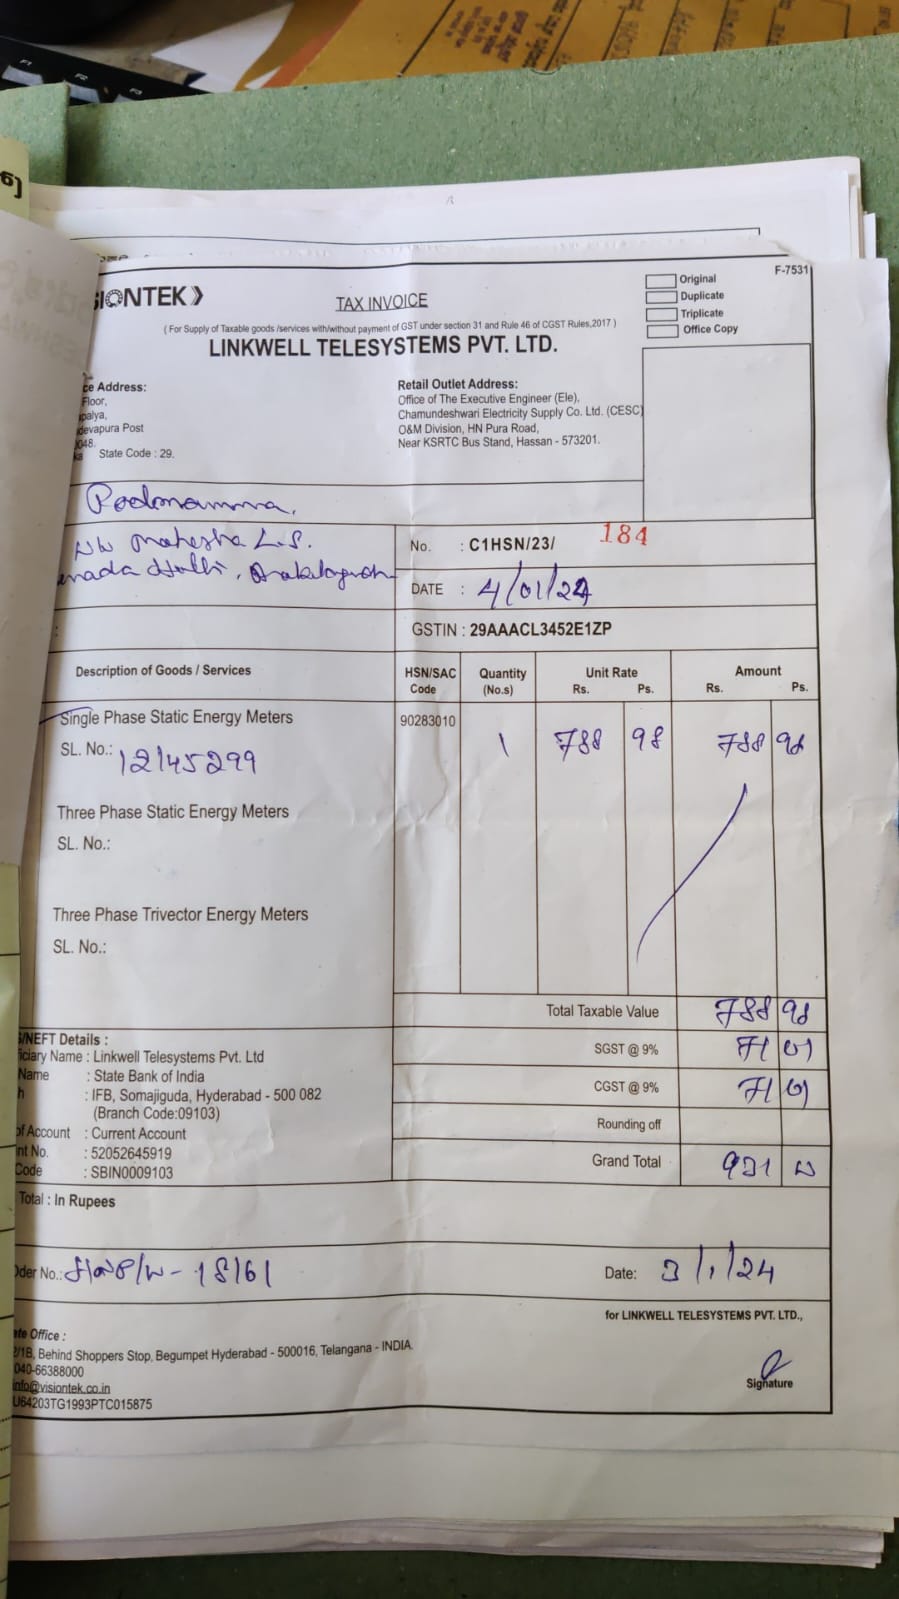 F1
F2
F3
F-7531
SIONTEK
TAX INVOICE
Original
Duplicate
Triplicate
Office Copy
( For Supply of Taxable goods /services with/without payment of GST under section 31 and Rule 46 of CGST Rules,2017 )
LINKWELL TELESYSTEMS PVT. LTD.
ce Address:
Floor,
palya,
devapura Post
048.
ka State Code : 29.
Retail Outlet Address:
Office of The Executive Engineer (Ele),
Chamundeshwari Electricity Supply Co. Ltd. (CESC)
O&M Division, HN Pura Road,
Near KSRTC Bus Stand, Hassan - 573201.
Padmamma,
Mahesha L.S.
No. : C1HSN/23/ 184
DATE : 4/01/24
GSTIN : 29AAACL3452E1ZP
Description of Goods / Services HSN/SAC Code Quantity (No.s) Unit Rate Rs. Ps. Amount Rs. Ps.
Single Phase Static Energy Meters 90283010 1 788 98 788 98
SL. No.: 12145299
Three Phase Static Energy Meters
SL. No.:
Three Phase Trivector Energy Meters
SL. No.:
Total Taxable Value 788 98
SGST @ 9% 71 01
CGST @ 9% 71 01
Rounding off
Grand Total 931
/NEFT Details :
ciary Name : Linkwell Telesystems Pvt. Ltd
Name : State Bank of India
h : IFB, Somajiguda, Hyderabad - 500 082
(Branch Code:09103)
of Account : Current Account
nt No. : 52052645919
Code : SBIN0009103
Total : In Rupees
der No.:
Date: 3/1/24
for LINKWELL TELESYSTEMS PVT. LTD.,
ate Office :
2/1B, Behind Shoppers Stop, Begumpet Hyderabad - 500016, Telangana - INDIA.
040-66388000
info@visiontek.co.in
U64203TG1993PTC015875
Signature